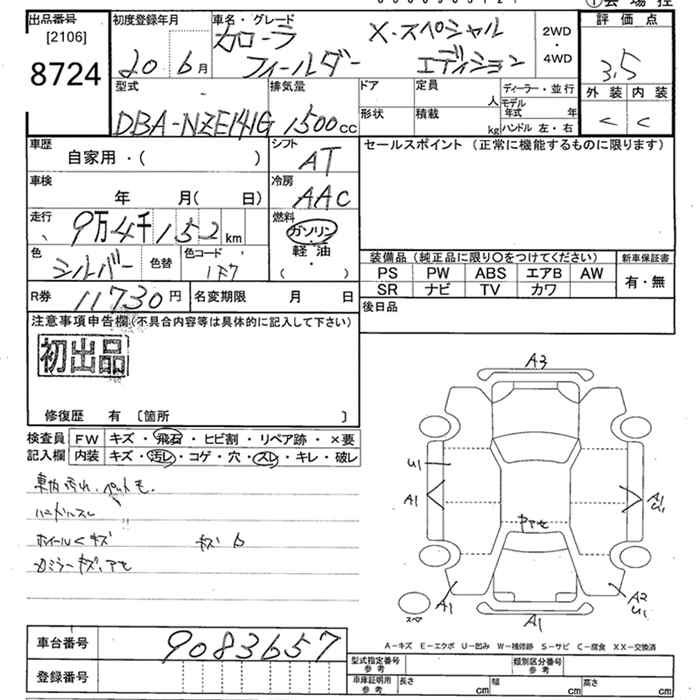 出品番号 [2106] 8724
初度登録年月 20年 6月
車名・グレード カローラ フィールダー X・スペシャル エディション
2WD・4WD
評価点 3.5
外装 内装
C C
型式 DBA-NZE141G
排気量 1500cc
ドア 形状
定員 人
積載 kg
ディーラー・並行
モデル年式 年
ハンドル 左・右
車歴 自家用・( )
シフト AT
セールスポイント (正常に機能するものに限ります)
車検 年 月( 日)
冷房 AAC
走行 9万4千152km
燃料 ガソリン・軽油 ( )
色 シルバー 色替 色コード 1F7
装備品 (純正品に限り○をつけてください) 新車保証書
PS PW ABS エアB AW 有・無
SR ナビ TV カワ
R券 11730円 名変期限 月 日
後日品
注意事項申告欄(不具合内容等は具体的に記入して下さい)
初出品
修復歴 有 [箇所 ]
検査員 FW キズ・飛石・ヒビ割・リペア跡・×要
記入欄 内装 キズ・汚レ・コゲ・穴・スレ・キレ・破レ
ハンドルスレ
ホイールキズ キズ
A3
U1
A1
A1 U1
ヤケセ
A1
A2 U1
A1
スペア
A-キズ E-エクボ U-凹み W-補修跡 S-サビ C-腐食 XX-交換済
車台番号 9083657
型式指定番号 参考 類別区分番号 参考
登録番号
車庫証明用 参考 長さ cm 幅 cm 高さ cm